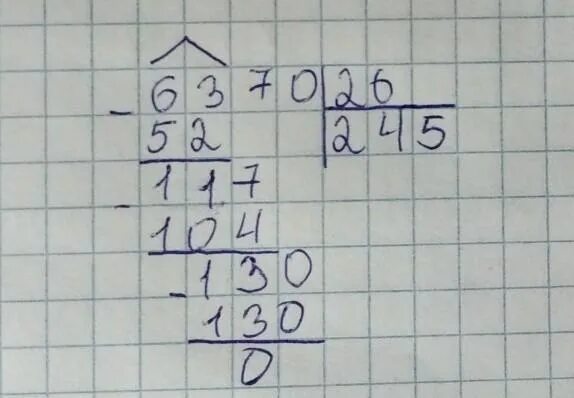 - 6370 | 26
52 | 245
- 117
104
- 130
130
0